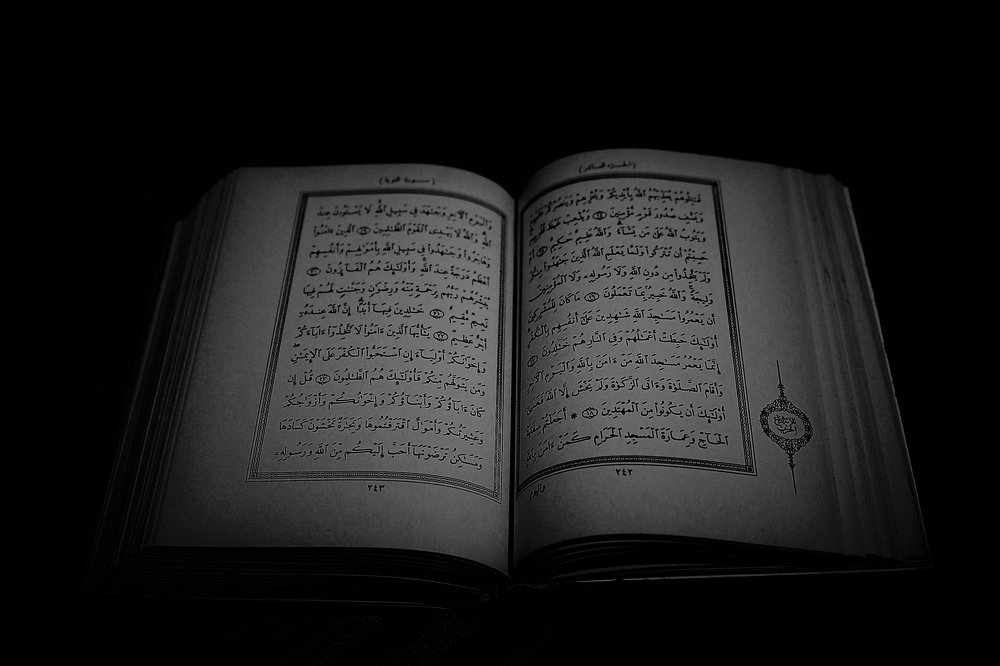 (الجزء العاشر)
قَٰتِلُوهُمْ يُعَذِّبْهُمُ ٱللَّهُ بِأَيْدِيكُمْ وَيُخْزِهِمْ وَيَنصُرْكُمْ عَلَيْهِمْ
وَيَشْفِ صُدُورَ قَوْمٍ مُّؤْمِنِينَ ١٤ وَيُذْهِبْ غَيْظَ قُلُوبِهِمْ
وَيَتُوبُ ٱللَّهُ عَلَىٰ مَن يَشَآءُ وَٱللَّهُ عَلِيمٌ حَكِيمٌ ١٥ أَمْ
حَسِبْتُمْ أَن تُتْرَكُوا۟ وَلَمَّا يَعْلَمِ ٱللَّهُ ٱلَّذِينَ جَٰهَدُوا۟ مِنكُمْ
وَلَمْ يَتَّخِذُوا۟ مِن دُونِ ٱللَّهِ وَلَا رَسُولِهِۦ وَلَا ٱلْمُؤْمِنِينَ
وَلِيجَةً وَٱللَّهُ خَبِيرٌۢ بِمَا تَعْمَلُونَ ١٦ مَا كَانَ لِلْمُشْرِكِينَ
أَن يَعْمُرُوا۟ مَسَٰجِدَ ٱللَّهِ شَٰهِدِينَ عَلَىٰٓ أَنفُسِهِم بِٱلْكُفْرِ
أُو۟لَٰٓئِكَ حَبِطَتْ أَعْمَٰلُهُمْ وَفِى ٱلنَّارِ هُمْ خَٰلِدُونَ ١٧
إِنَّمَا يَعْمُرُ مَسَٰجِدَ ٱللَّهِ مَنْ ءَامَنَ بِٱللَّهِ وَٱلْيَوْمِ ٱلْءَاخِرِ
وَأَقَامَ ٱلصَّلَوٰةَ وَءَاتَى ٱلزَّكَوٰةَ وَلَمْ يَخْشَ إِلَّا ٱللَّهَ فَعَسَىٰٓ
أُو۟لَٰٓئِكَ أَن يَكُونُوا۟ مِنَ ٱلْمُهْتَدِينَ ١٨ * أَجَعَلْتُمْ سِقَايَةَ
ٱلْحَآجِّ وَعِمَارَةَ ٱلْمَسْجِدِ ٱلْحَرَامِ كَمَنْ ءَامَنَ بِٱللَّهِ
٢٤٢
واليوم
(سورة التوبة)
وَٱلْيَوْمِ ٱلْءَاخِرِ وَجَٰهَدَ فِى سَبِيلِ ٱللَّهِ لَا يَسْتَوُۥنَ عِندَ
ٱللَّهِ وَٱللَّهُ لَا يَهْدِى ٱلْقَوْمَ ٱلظَّٰلِمِينَ ١٩ ٱلَّذِينَ ءَامَنُوا۟
وَهَاجَرُوا۟ وَجَٰهَدُوا۟ فِى سَبِيلِ ٱللَّهِ بِأَمْوَٰلِهِمْ وَأَنفُسِهِمْ
أَعْظَمُ دَرَجَةً عِندَ ٱللَّهِ وَأُو۟لَٰٓئِكَ هُمُ ٱلْفَآئِزُونَ ٢٠
يُبَشِّرُهُمْ رَبُّهُم بِرَحْمَةٍ مِّنْهُ وَرِضْوَٰنٍ وَجَنَّٰتٍ لَّهُمْ فِيهَا
نَعِيمٌ مُّقِيمٌ ٢١ خَٰلِدِينَ فِيهَآ أَبَدًا إِنَّ ٱللَّهَ عِندَهُۥٓ
أَجْرٌ عَظِيمٌ ٢٢ يَٰٓأَيُّهَا ٱلَّذِينَ ءَامَنُوا۟ لَا تَتَّخِذُوٓا۟ ءَابَآءَكُمْ
وَإِخْوَٰنَكُمْ أَوْلِيَآءَ إِنِ ٱسْتَحَبُّوا۟ ٱلْكُفْرَ عَلَى ٱلْإِيمَٰنِ
وَمَن يَتَوَلَّهُم مِّنكُمْ فَأُو۟لَٰٓئِكَ هُمُ ٱلظَّٰلِمُونَ ٢٣ قُلْ إِن
كَانَ ءَابَآؤُكُمْ وَأَبْنَآؤُكُمْ وَإِخْوَٰنُكُمْ وَأَزْوَٰجُكُمْ
وَعَشِيرَتُكُمْ وَأَمْوَٰلٌ ٱقْتَرَفْتُمُوهَا وَتِجَٰرَةٌ تَخْشَوْنَ كَسَادَهَا
وَمَسَٰكِنُ تَرْضَوْنَهَآ أَحَبَّ إِلَيْكُم مِّنَ ٱللَّهِ وَرَسُولِهِۦ
٢٤٣